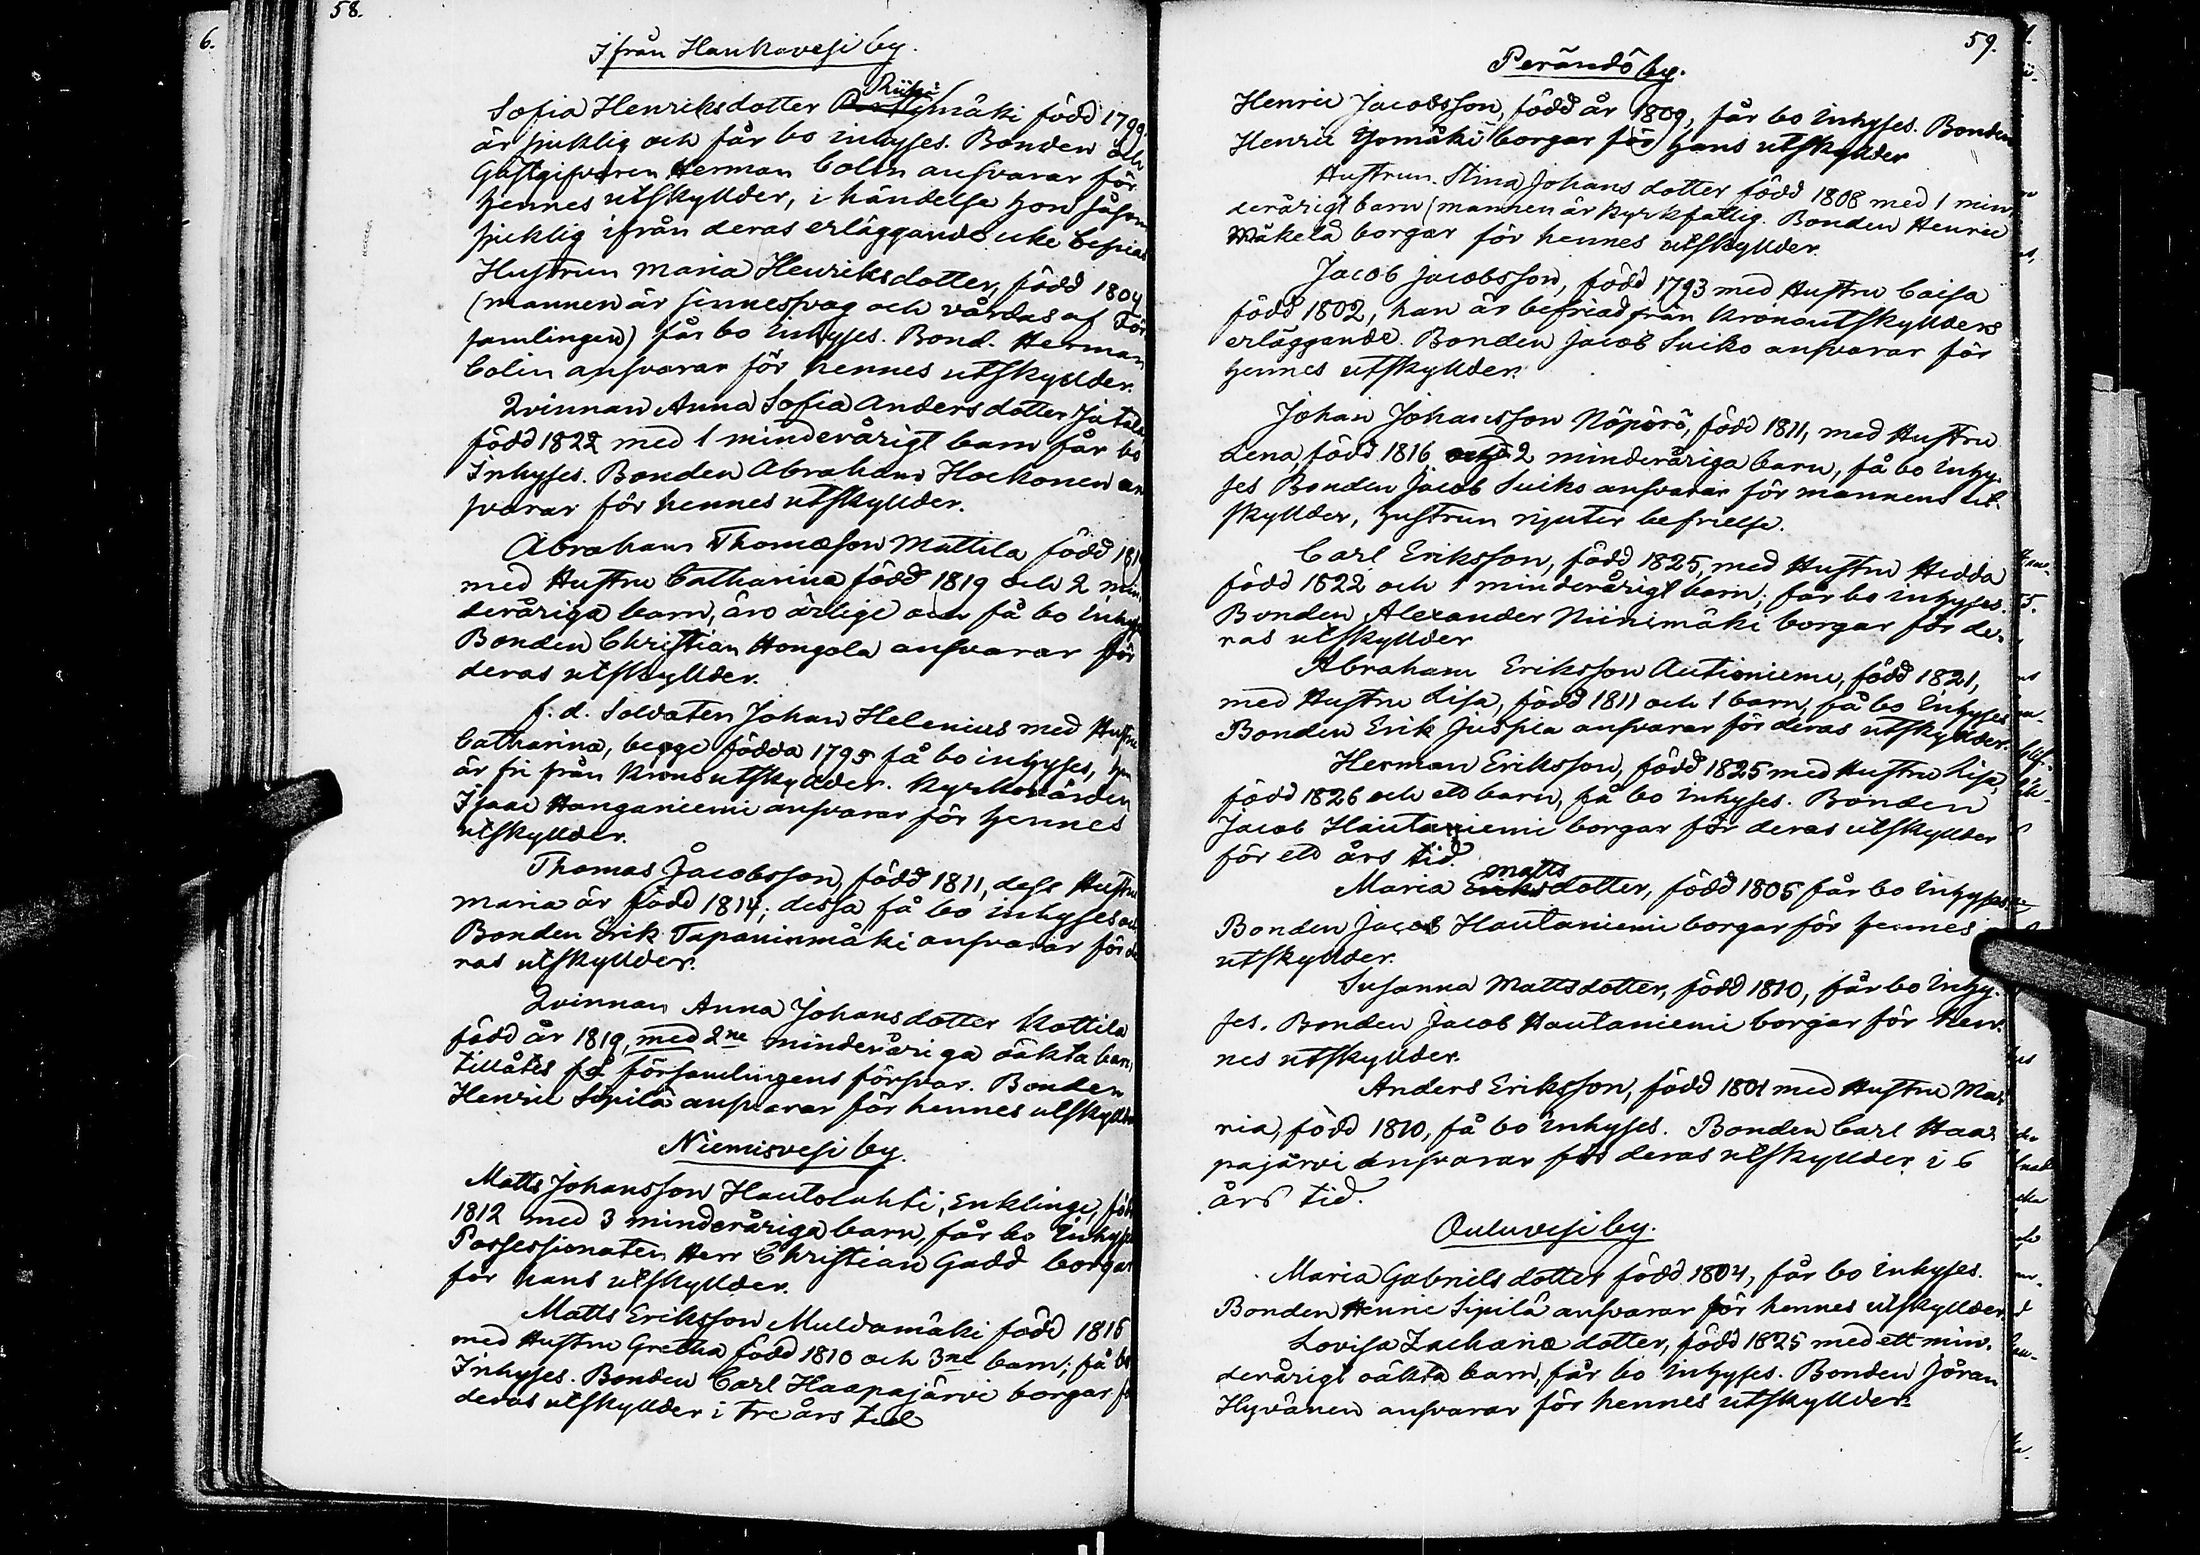 58.
Ifrån Hankavesi by.
Sofia Henriksdotter Riihimäki född 1799.
är sjuklig och får bo inhyses. Bonden och
Gästgifvaren Herman Colin ansvarar för
hennes utskyllder, i händelse hon såsom
sjuklig ifrån deras erläggande icke befrias
Hustrun Maria Henriksdotter, född 1804
(mannen är sinnessvag och vårdas af För
samlingen) får bo inhyses. Bond. Herman
Colin ansvarar för hennes utskyllder.
Qvinnan Anna Sofia Andersdotter Jutala
född 1822 med 1 minderårigt barn får bo
Inhyses. Bonden Abraham Hockonen an
svarar för hennes utskyllder.
Abraham Thomæson Mattila född
med Hustru Catharina född 1819 och 2 min
deråriga barn, äro ärlige och få bo inhyses
Bonden Christian Hongola ansvarar för
deras utskyllder.
f.d. Soldaten Johan Helenius med Hustru
Catharina, begge födda 1795 få bo inhyses, han
är fri från Kronoutskyllder. Kyrkovärden
Isaac Hanganiemi ansvarar för hennes
utskyllder.
Thomas Jacobsson, född 1811, dess Hustru
Maria är född 1814; dessa få bo inhyses och
Bonden Erik Tapaninmäki ansvarar för de
ras utskyllder.
Qvinnan Anna Johansdotter Kottila
född år 1819, med 2ne minderåriga oäkta barn,
tillåtes få församlingens försvar. Bonden
Henric Sipilä ansvarar för hennes utskyllder
Niemisvesi by.
Matts Johansson Hautolahti, Enklinge, född
1812 med 3 minderåriga barn, får bo Inhyses
Possessionaten Herr Christian Gadd borgar
för hans utskyllder.
Matts Eriksson Muldamäki född 1816
med Hustru Gretha född 1810 och 3ne barn; få bo
Inhyses. Bonden Carl Haapajärvi borgar för
deras utskyllder i tre års tid
59.
Perändö by.
Henric Jacobsson, född år 1809, får bo inhyses. Bonden
Henric Yomäki borgar för hans utskyllder
Hustrun Stina Johansdotter född 1808 med 1 min
derårigt barn (mannen är kyrkfattig. Bonden Henric
Mäkelä borgar för hennes utskyllder.
Jacob Jacobsson, född 1793 med Hustru Caisa
född 1802, han är befriad från Kronoutskyllders
erläggande. Bonden Jacob Suiko ansvarar för
hennes utskyllder.
Johan Johansson Nöpörö, född 1811, med Hustru
Lena, född 1816 och 2 minderåriga barn, få bo inhy-
ses Bonden Jacob Suiko ansvarar för mannens ut-
skyllder, hustrun njuter befrielse.
Carl Eriksson, född 1825, med Hustru Hedda
född 1822 och 1 minderårigt barn; får bo inhyses.
Bonden Alexander Niinimäki borgar för de-
ras utskyllder
Abraham Eriksson Autioniemi, född 1821,
med Hustru Lisa, född 1811 och 1 barn, få bo Inhyses
Bonden Erik Juspia ansvarar för deras utskyllder.
Herman Eriksson, född 1825 med Hustru Lisa,
född 1826 och ett barn, få bo inhyses. Bonden
Jacob Hautaniemi borgar för deras utskyllder
för ett års tid.
Maria Mattsdotter, född 1805 får bo inhyses
Bonden Jacob Hautaniemi borgar för hennes
utskyllder.
Susanna Mattsdotter, född 1810, får bo Inhy-
ses. Bonden Jacob Hautaniemi borgar för hen-
nes utskyllder.
Anders Eriksson, född 1801 med Hustru Ma-
ria, född 1810, få bo inhyses. Bonden Carl Haa-
pajärvi ansvarar för deras utskyllder i 6
års tid.
Ouluvesi by.
Maria Gabrielsdotter född 1804, får bo inhyses.
Bonden Henric Sipilä ansvarar för hennes utskyllder
Lovisa Zachariædotter, född 1825 med ett min-
derårigt oäkta barn, får bo inhyses. Bonden Jöran
Hyvänen ansvarar för hennes utskyllder.